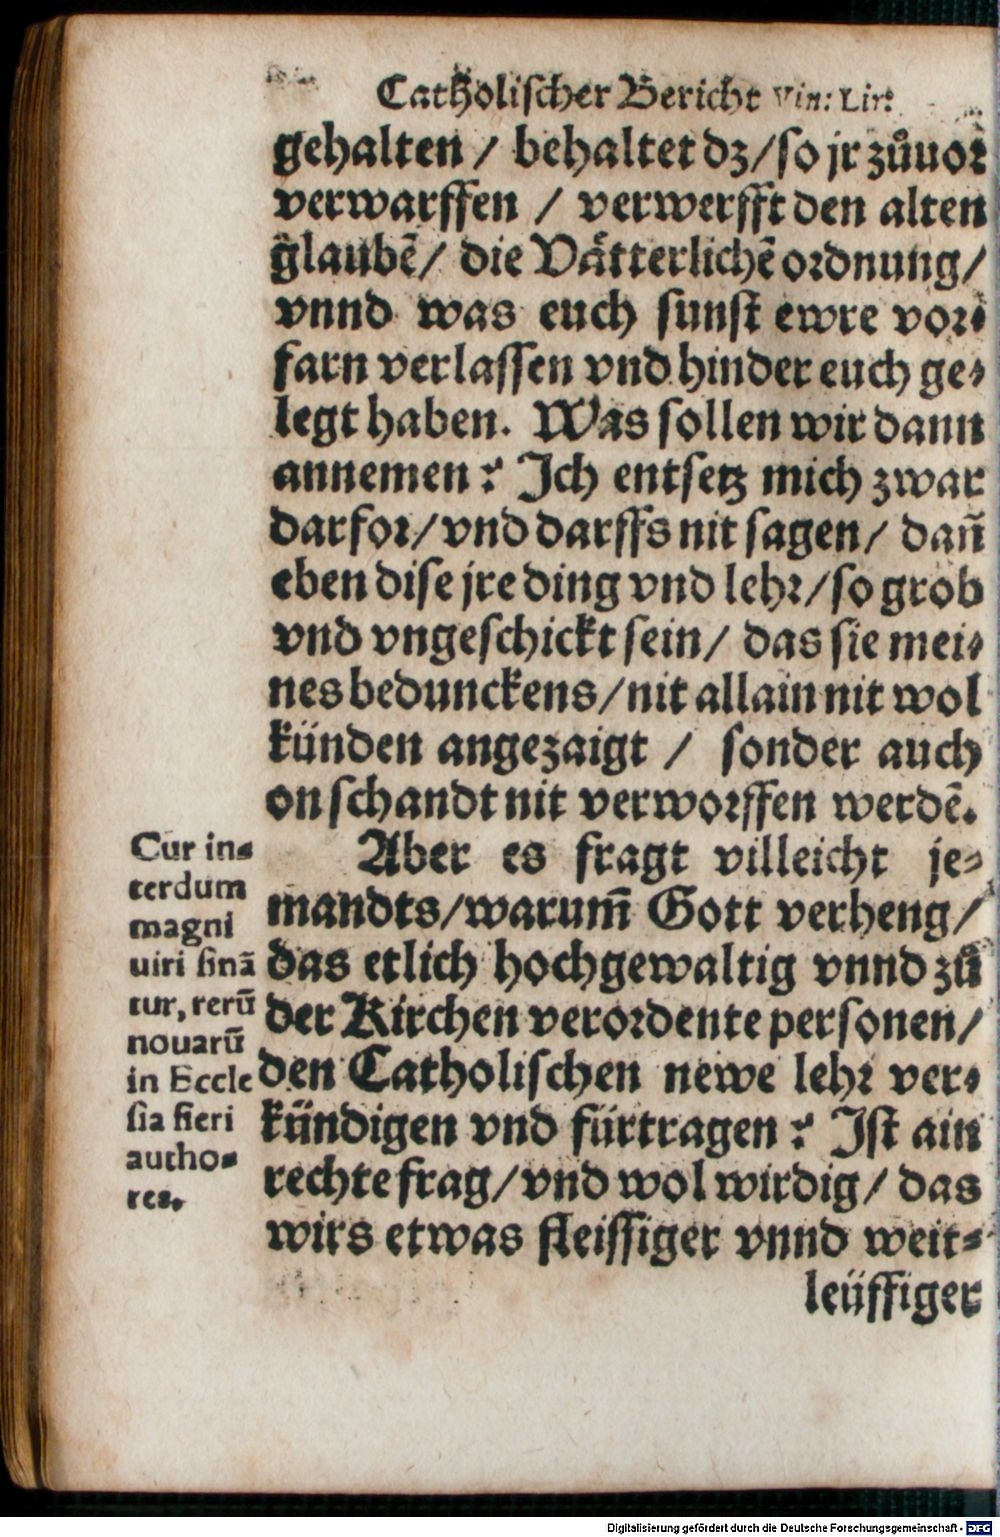 Catholischer Bericht Vin: Lir:
gehalten / behaltet dz/so jr zůuor
verwarffen / verwerfft den alten
glaubẽ/ die Vätterlichẽ ordnung/
vnnd was euch sunst ewre vor-
farn verlassen vnd hinder euch ge-
legt haben. Was sollen wir dann
annemen? Ich entsetz mich zwar
darfor/vnd darffs nit sagen/ dañ
eben dise jre ding vnd lehr/so grob
vnd vngeschickt sein/ das sie mei-
nes bedunckens/nit allain nit wol
künden angezaigt / sonder auch
on schandt nit verworffen werdẽ.
Aber es fragt villeicht je-
mandts/warum̃ Gott verheng/
das etlich hochgewaltig vnnd zů
der Kirchen verordente personen/
den Catholischen newe lehr ver-
kündigen vnd fürtragen? Ist ain
rechte frag/vnd wol wirdig/ das
wirs etwas fleissiger vnnd weit-
leüffiger
Cur in-
terdum
magni
uiri sinã
tur, rerũ
nouarũ
in Eccle
sia fieri
autho-
res.
Digitalisierung gefördert durch die Deutsche Forschungsgemeinschaft - DFG